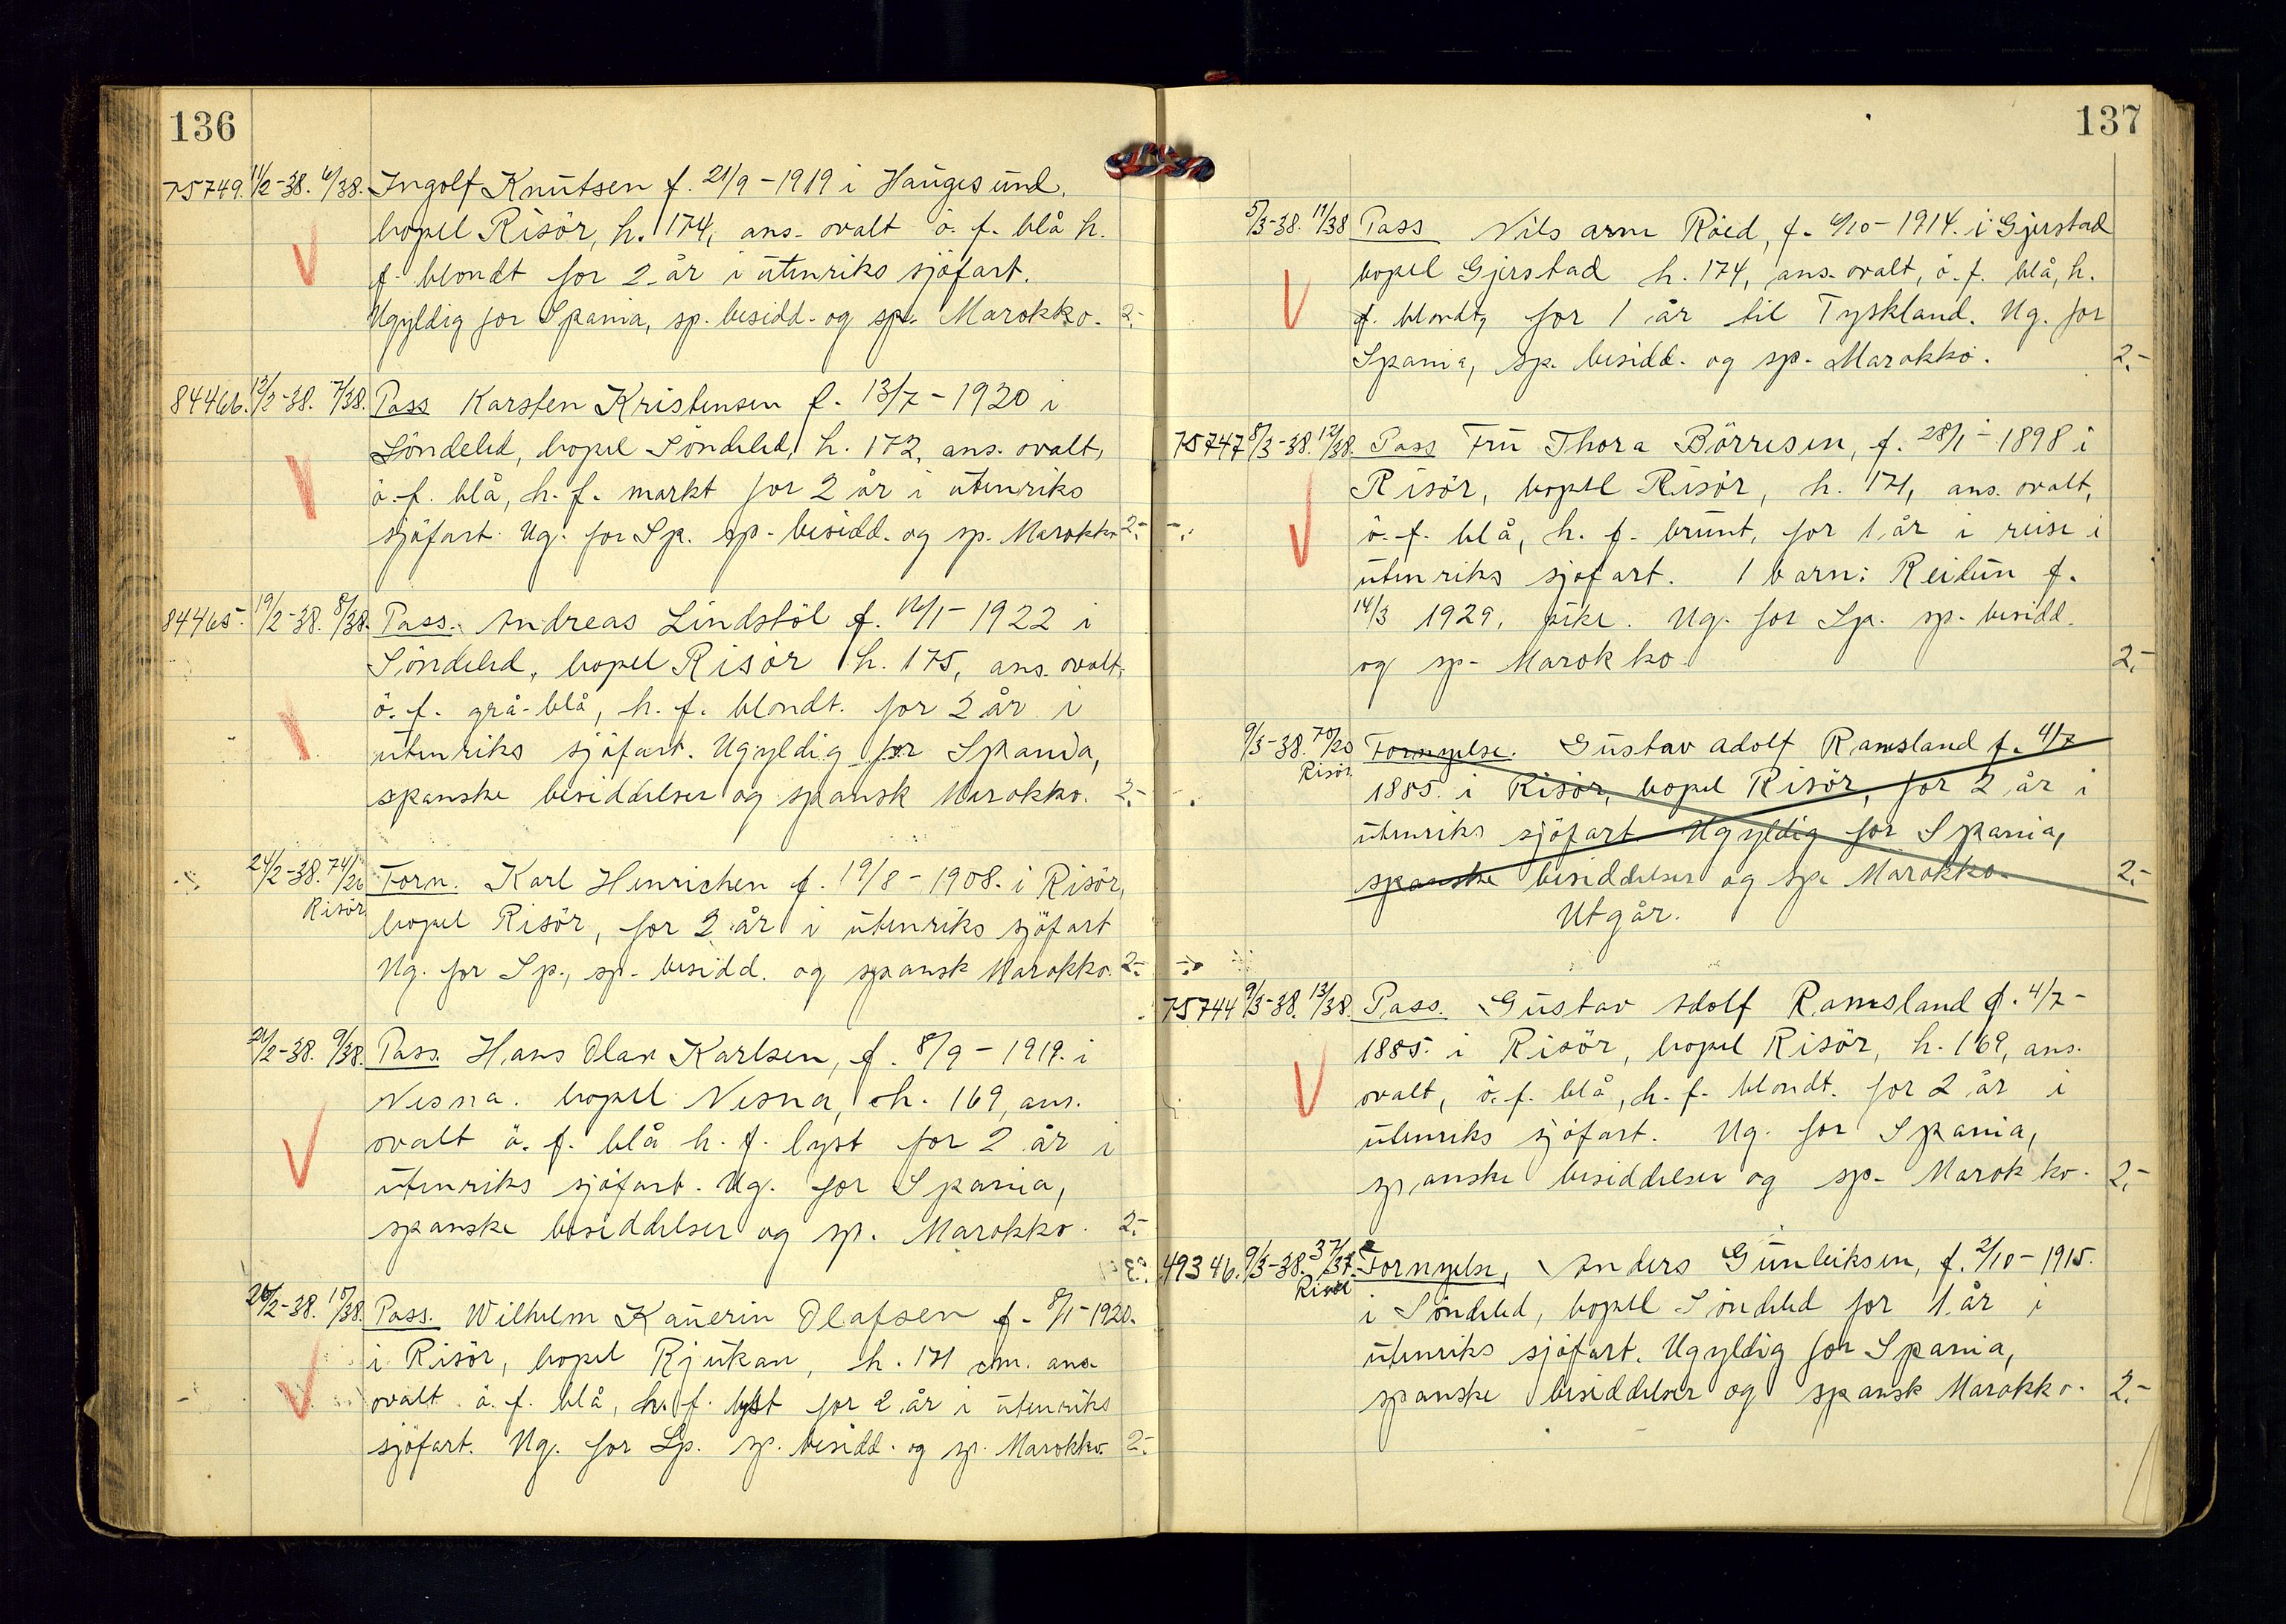 136
75749. 11/2-38. 6/38. Ingolf Knutsen f. 21/9-1919 i Haugesund,
bopel Risör, h. 174, ans. ovalt ö. f. blå h.
f. blondt for 2 år i utenriks sjöfart.
Ugyldig for Spania, sp. besidd. og sp. Marokko. 2.-
84466. 12/2-38. 7/38. Pass Karsten Kristensen f. 13/7-1920 i
Söndeled, bopel Söndeled, h. 172, ans. ovalt,
ö.f. blå, h.f. mørkt for 2 år i utenriks
sjöfart. Ug. for Sp. sp. besidd. og sp. Marokko 2.-
84465. 19/2-38. 8/38. Pass. Andreas Lindstöl f. 12/1-1922 i
Söndeled, bopel Risör h. 175, ans. ovalt,
ö. f. grå-blå, h. f. blondt. for 2 år i
utenriks sjöfart. Ugyldig for Spania,
spanske besiddelser og spansk Marokko. 2.-
24/2-38. 74/26 Forn. Karl Henrichen f. 19/8-1908. i Risör,
Risör
bopel Risör, for 2 år i utenriks sjöfart
Ug. for Sp., sp. besidd. og spansk Marokko. 2.-
9/38. Pass. Hans Olav Karlsen, f. 8/9-1919. i
Nesna. bopel Nesna, h. 169, ans.
ovalt ö. f. blå h. f. lyst for 2 år i
utenriks sjöfart. Ug. for Spania,
spanske besiddelser og sp. Marokko. 2.-
26/2-38. 10/38. Pass. Wilhelm Kaurin Olafsen f. 8/1-1920.
i Risör, bopel Rjukan, h. 171 cm. ans
ovalt ö. f. blå, h. f. lyst for 2 år i utenriks
sjöfart. Ug. for Sp. sp. besidd. og sp. Marokko. 2.-
137
5/3-38. 11/38 Pass Nils Arne Röed, f. 6/10-1914. i Gjerstad
bopel Gjerstad h. 174, ans. ovalt, ö. f. blå, h.
f. blondt, for 1 år til Tyskland. Ug. for
Spania, sp. besidd. og sp. Marokko. 2.-
75747 8/3-38. 12/38. Pass Fru Thora Börresen, f. 28/1-1898 i
Risör, bopel Risör, h. 171, ans. ovalt,
ö. f. blå, h. f. brunt, for 1 år i reise i
utenriks sjöfart. 1 barn: Reidun f.
14/3 1929, pike. Ug. for Sp. sp. besidd.
og sp. Marokko. 2.-
9/3-38. 70/20 Fornyelse. Gustav Adolf Ramsland f. 4/7
Risör
1885. i Risör, bopel Risör, for 2 år i
utenriks sjöfart Ugyldig for Spania,
spanske besiddelser og sp. Marokko. 2.-
Utgår.
75744 9/3-38. 13/38. Pass. Gustav Adolf Ramsland f. 4/7-
1885. i Risör, bopel Risör, h. 169, ans.
ovalt, ö. f. blå, h. f. blondt. for 2 år i
utenriks sjöfart. Ug. for Spania,
spanske besiddelser og sp. Marokko. 2.-
49346. 9/3-38. 37/37. Fornyelse, Anders Gunleiksen, f. 2/10-1915.
Risör
i Söndeled, bopel Söndeled for 1 år i
utenriks sjöfart. Ugyldig for Spania,
spanske besiddelser og spansk Marokko. 2.-